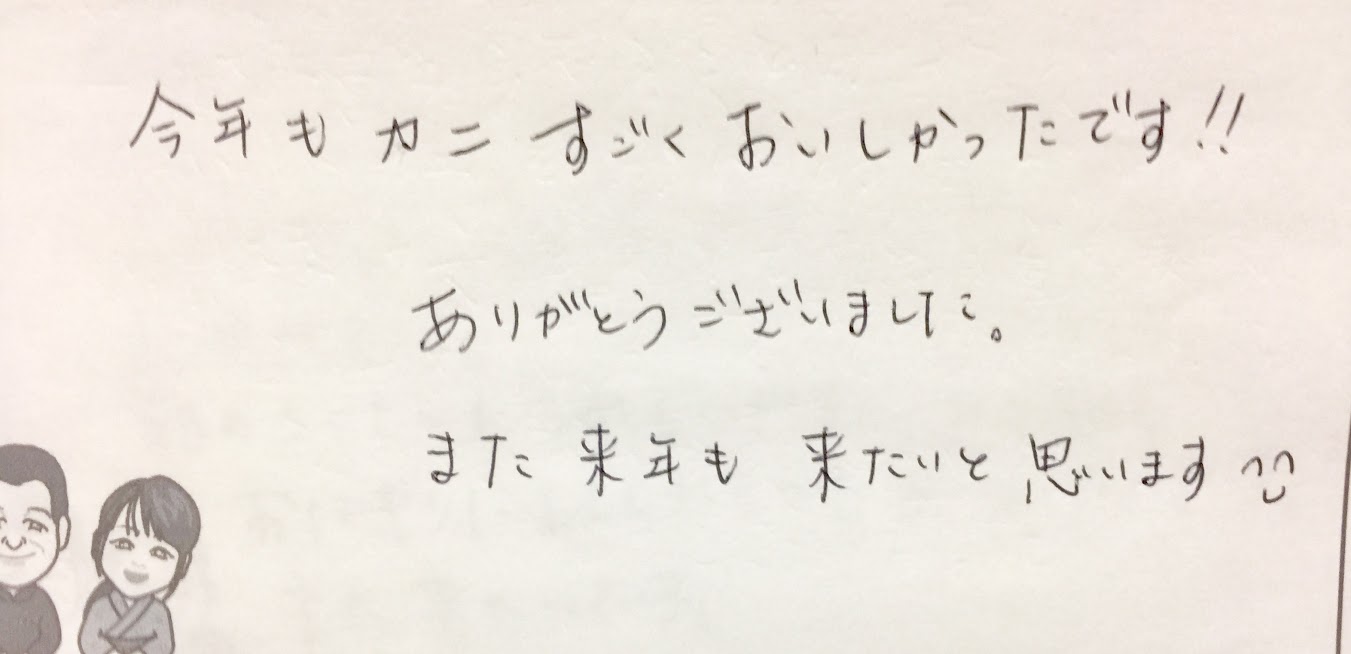 今年も カニ すごく おいしかったです!!
ありがとうございました。
また来年も 来たいと 思います